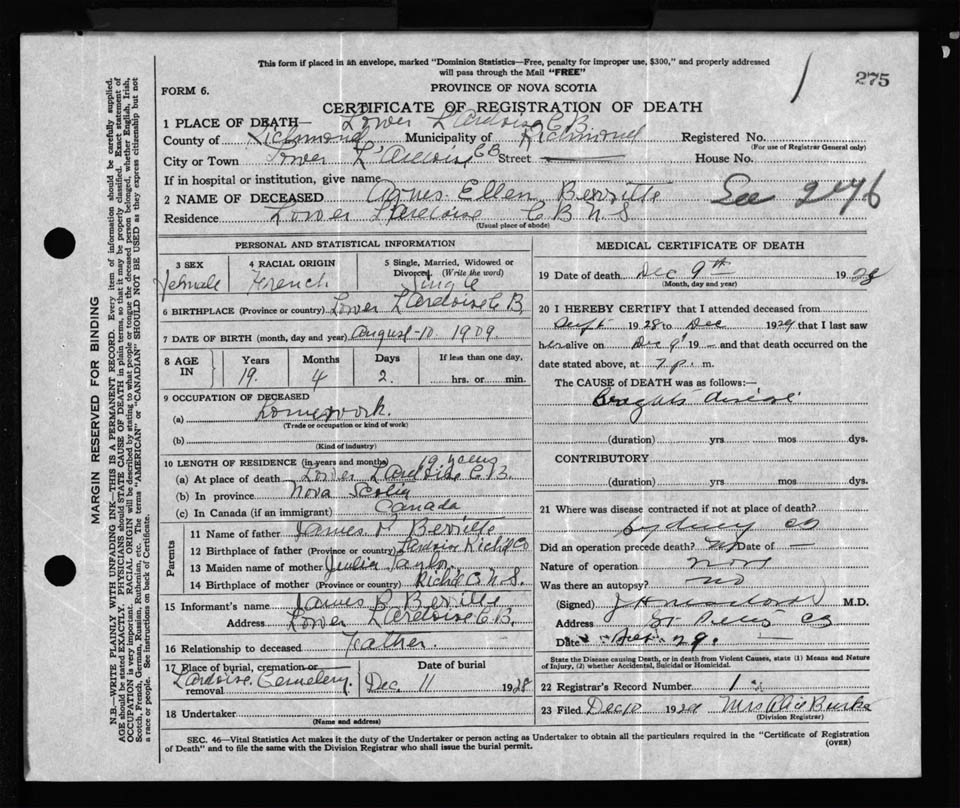 This form if placed in an envelope, marked "Dominion Statistics—Free, penalty for improper use, $300," and properly addressed
will pass through the Mail "FREE"
275
FORM 6.
PROVINCE OF NOVA SCOTIA
CERTIFICATE OF REGISTRATION OF DEATH
1 PLACE OF DEATH— Lower L'Ardoise C B
County of Richmond Municipality of Richmond Registered No.
(For use of Registrar General only)
City or Town Lower L'Ardoise CB Street House No.
If in hospital or institution, give name
2 NAME OF DECEASED Agnes Ellen Berritte
See 2476
Residence Lower L'Ardoise C B N S
(Usual place of abode)
MARGIN RESERVED FOR BINDING
N.B.—WRITE PLAINLY WITH UNFADING INK—THIS IS A PERMANENT RECORD. Every item of information should be carefully supplied.
AGE should be stated EXACTLY. PHYSICIANS should STATE CAUSE OF DEATH in plain terms, so that it may be properly classified. Exact statement of
OCCUPATION is very important. RACIAL ORIGIN will be described by stating to what people or tongue the deceased person belonged, whether English, Irish,
Scotch, French, German, Russian, Ruthenian, etc. The terms "AMERICAN" or "CANADIAN" SHOULD NOT BE USED as they express citizenship but not
a race or people. See instructions on back of Certificate.
PERSONAL AND STATISTICAL INFORMATION
3 SEX
Female
4 RACIAL ORIGIN
French
5 Single, Married, Widowed or
Divorced, (Write the word)
Single
6 BIRTHPLACE (Province or country) Lower L'Ardoise C B,
7 DATE OF BIRTH (month, day and year) August-10. 1909.
8 AGE
IN
Years
19.
Months
4
Days
2.
If less than one day,
hrs. or min.
9 OCCUPATION OF DECEASED
(a) Homework.
(Trade or occupation or kind of work)
(b)
(Kind of industry)
10 LENGTH OF RESIDENCE (in years and months) 19 years
(a) At place of death Lower L'Ardoise C.B.
(b) In province Nova Scotia
(c) In Canada (if an immigrant) Canada
Parents
11 Name of father James Berritte
12 Birthplace of father (Province or country) Richd Co
13 Maiden name of mother Julia Taylor
14 Birthplace of mother (Province or country) Richd C. N.S.
15 Informant's name James Berritte
Address Lower L'Ardoise C.B.
16 Relationship to deceased Father.
17 Place of burial, cremation or
removal L'Ardoise Cemetery.
Date of burial
Dec 11 1928
18 Undertaker
(Name and address)
MEDICAL CERTIFICATE OF DEATH
19 Date of death Dec 9th 1928
(Month, day and year)
20 I HEREBY CERTIFY that I attended deceased from
Sept 1928 to Dec 1929 that I last saw
her alive on Dec 9 19 — and that death occurred on the
date stated above, at 7 p. m.
The CAUSE OF DEATH was as follows:—
Brights disease
(duration) yrs mos dys.
CONTRIBUTORY
(duration) yrs mos dys.
21 Where was disease contracted if not at place of death?
Sydney CB
Did an operation precede death? No Date of —
Nature of operation
Was there an autopsy? no
(Signed) M.D.
Address St Peters CB
Date 29. —
State the Disease causing Death, or in death from Violent Causes, state (1) Means and Nature
of Injury, (2) whether Accidental, Suicidal or Homicidal.
22 Registrar's Record Number 1
23 Filed Dec 10 1929 Mrs Alice Burke
(Division Registrar)
SEC. 46—Vital Statistics Act makes it the duty of the Undertaker or person acting as Undertaker to obtain all the particulars required in the "Certificate of Registration
of Death" and to file the same with the Division Registrar who shall issue the burial permit.
(OVER)